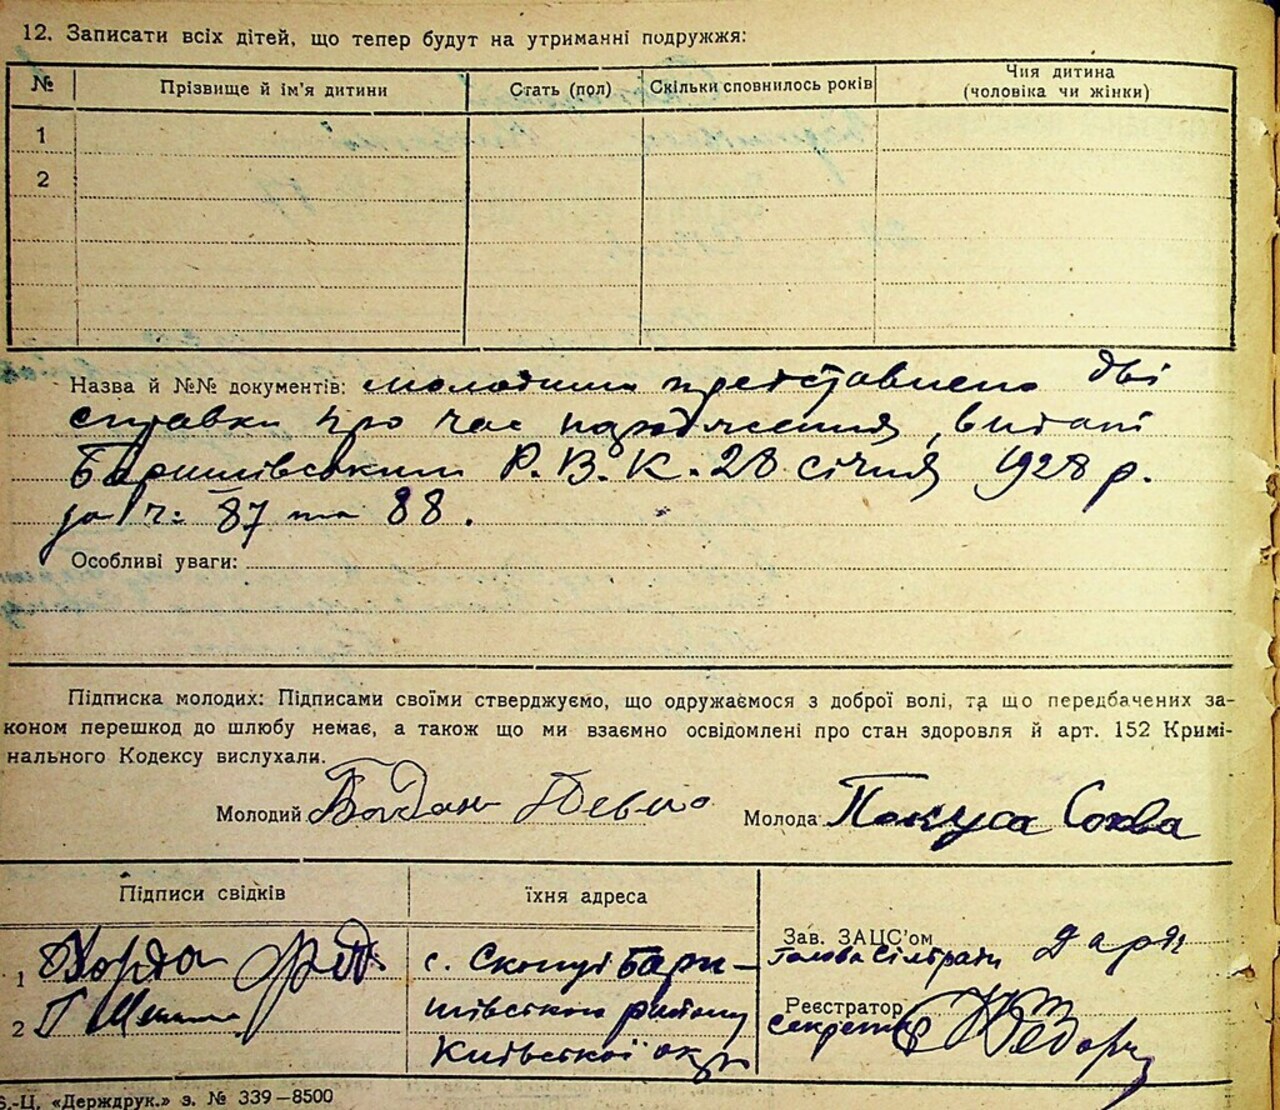 12. Записати всіх дітей, що тепер будут на утриманні подружжя:
№ Прізвище й ім'я дитини Стать (пол) Скільки сповнилось років Чия дитина
(чоловіка чи жінки)
1
2
Назва й №№ документів: молодими представлено дві
справки про час народження, видані
Баришівським Р.В.К. 28 січня 1928 р.
за ч: 87 та 88.
Особливі уваги:
Підписка молодих: Підписами своїми стверджуємо, що одружаємося з доброї волі, та що передбачених за-
коном перешкод до шлюбу немає, а також що ми взаємно освідомлені про стан здоровля й арт. 152 Кримі-
нального Кодексу вислухали.
Молодий Богдан Молода
Підписи свідків їхня адреса
Зав. ЗАЦС'ом
1 с. Скопці Бари- Голова Сільради
2 шівського району Реєстратор
Київської окр секретар
«Держдрук.» з. № 339—8500